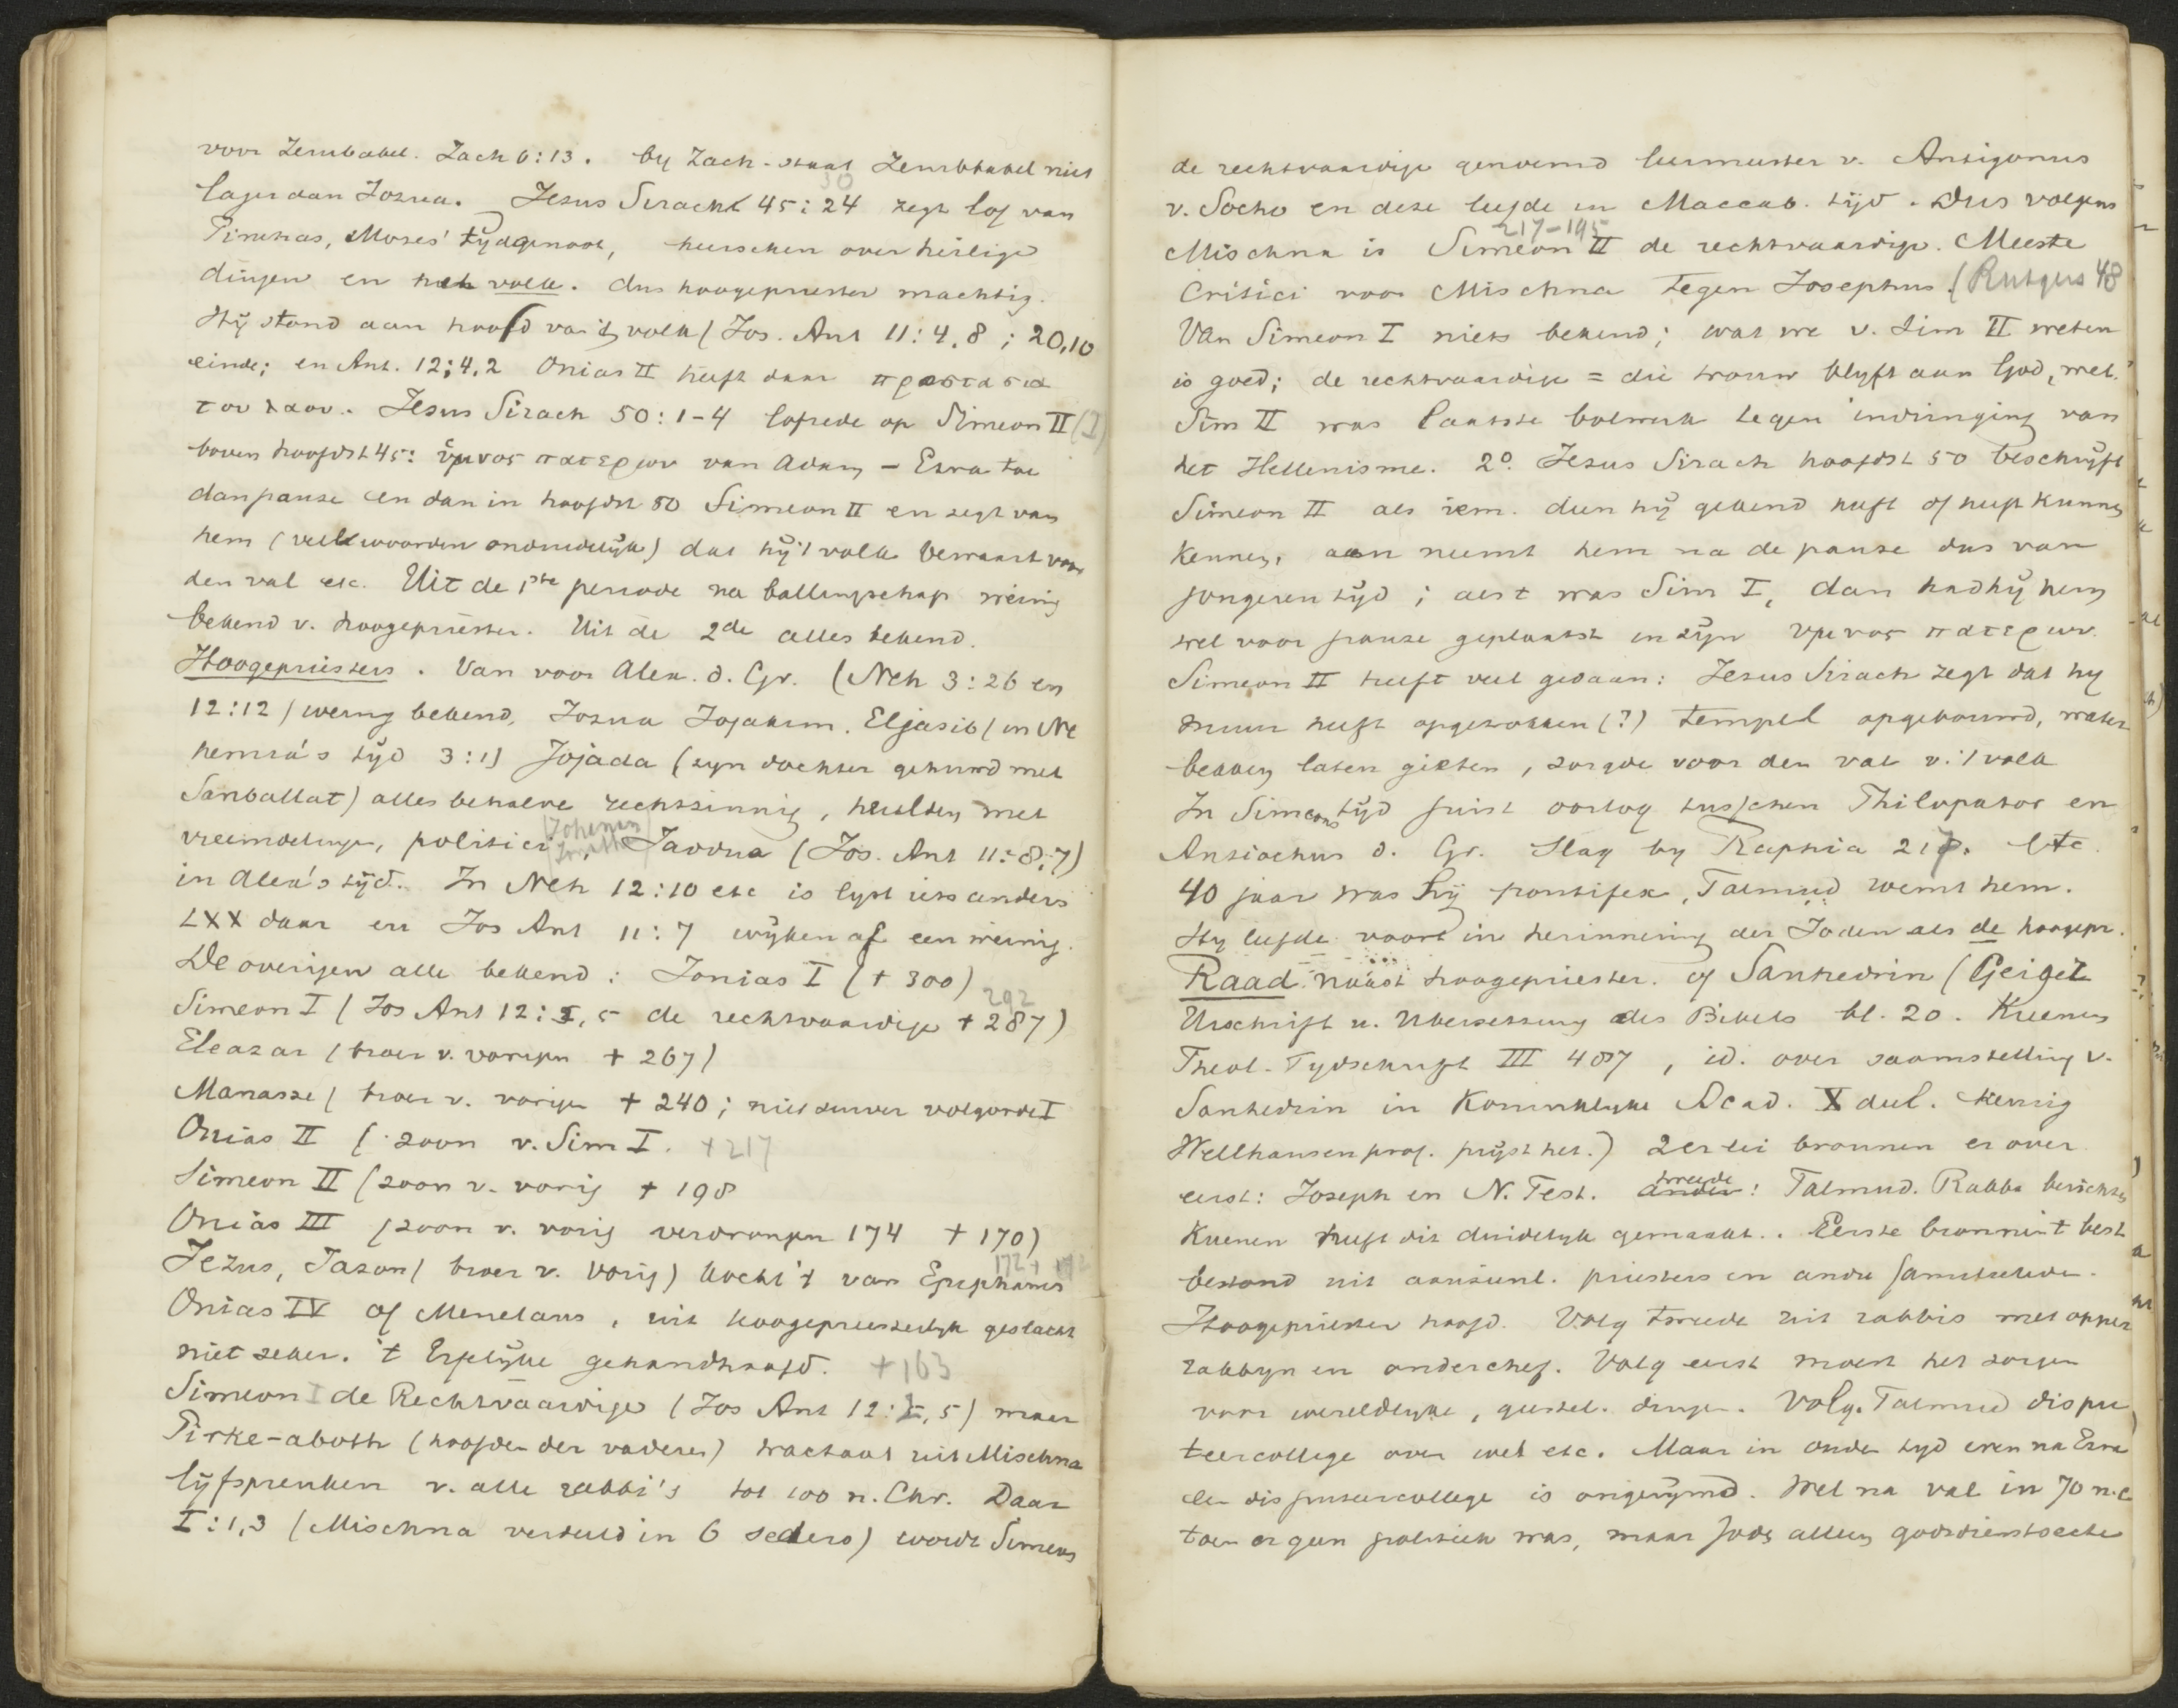 voor Zerubabel. Zach 6:13. by Zach. staat Zerubbabel niet
lager dan Jozua. Jezus Sirach 45:24 30 zegt lof van
Pinehas, Mozes' tijdgenoot, heerschen over heilige
dingen en het volk. dus hoogepriester machtig.
Hij stond aan hoofd van 't volk (Jos. Ant 11:4,8; 20,10
einde; en Ant. 12:4,2 Onias II heeft daar προστασια
του λαου. Jesus Sirach 50:1-4 lofrede op Simeon II (I)
boven hoofdst 45: ὑμνος πατερων van Adam - Ezra toe
dan pauze en dan in hoofdst 50 Simeon II en zegt van
hem (veel woorden onduidelijk) dat hij 't volk bewaart voor
den val etc. Uit de 1ste periode na ballingschap weinig
bekend v. hoogepriester. Uit de 2de alles bekend.
Hoogepriesters. Van voor Alex. d. Gr. (Neh 3:26 en
12:12) weinig bekend, Jozua Jojakim. Eljasib (in Ne
hemia's tijd 3:1) Jojada (zyn dochter gehuwd met
Sanballat) alles behalve rechtzinnig, heulden met
vreemdelingen, politici, (Johanan) Jaddua (Jos. Ant 11:8,7)
in Alex's tijd. In Neh 12:10 etc is lyst iets anders
LXX daar en Jos Ant 11:7 wijken af een weinig.
De overigen alle bekend: Jonias I († 300)
Simeon I (Jos Ant 12:2,5 de rechtvaardige † 287) 292
Eleazar (broer v. vorigen † 267)
Manasse (broer v. vorige † 240; niet zuiver volgorde I
Onias II (zoon v. Sim I. † 217
Simeon II (zoon v. vorig † 198
Onias III (zoon v. vorig verdrongen 174 † 170)
Jezus, Jazon (broer v. vorig) kocht 't van Epiphanes 172
Onias IV of Menelaus, uit hoogepriesterlyk geslacht
niet zeker. 't Erfelijke gehandhaafd. † 163
Simeon I de Rechtvaardige (Jos Ant 12:2,5) maar
Pirke-aboth (hoofden der vaderen) tractaat uit Mischna
lijfspreuken v. alle rabbi's tot 100 n. Chr. Daar
I:1,3 (Mischna verdeeld in 6 seders) wordt Simeon
de rechtvaardige genoemd leermeester v. Antigonus
v. Socho en deze leefde in Maccab. tijd. Dus volgens
Mischna is Simeon II 217-195 de rechtvaardige. Meeste
Critici voor Mischna tegen Josephus. (Rutgers 48
Van Simeon I niets bekend; wat we v. Sim II weten
is goed; de rechtvaardige = die trouw blyft aan God, wet.
Sim II was laatste bolwerk tegen indringing van
het Hellenisme. 2o. Jezus Sirach hoofdst 50 beschrijft
Simeon II als iem. dien hij gekend heeft of heeft kunnen
kennen, en neemt hem na de pauze dus van
jongeren tijd; als 't was Sim I, dan had hij hem
wel voor pauze geplaatst in zijn υμνος πατερων.
Simeon II heeft veel gedaan: Jezus Sirach zegt dat hy
muur heeft opgetrokken (?) tempel opgebouwd, water
bekken laten gieten, zorgde voor den val v. 't volk
In Simeons tijd juist oorlog tusschen Philopator en
Antiochus d. Gr. Slag by Raphia 217. Etc.
40 jaar was hij pontifex, Talmud roemt hem.
Hy leefde voort in herinnering der Joden als de hoogepr.
Raad naast hoogepriester. of Sanhedrin (Geiger
Urschrift u. Uebersetzung des Bibels bl. 20. Kuenen
Theol. Tydschrift III 487, id. over saamstelling v.
Sanhedrin in Koninklyke Acad. X deel.
Wellhausen prof. prijst het.) 2erlei bronnen er over
eerst: Joseph en N. Test. ander tweede: Talmud. Rabb. berichten
Kuenen heeft dit duidelyk gemaakt. Eerste bron is 't best
bestond uit aanzienl. priesters en andere familieleden.
Hoogepriester hoofd. Volg tweede uit rabbis met opper
rabbyn en onderchef. Volg eerst moest het zorgen
voor wereldlyke, geestel. dingen. Volg. Talmud dispu
teercollege over wet etc. Maar in ouden tyd even na Ezra
een disputeercollege is ongerijmd. Wel na val in 70 n.C
toen er geen politiek was, maar Jods alleen godsdienstsecte